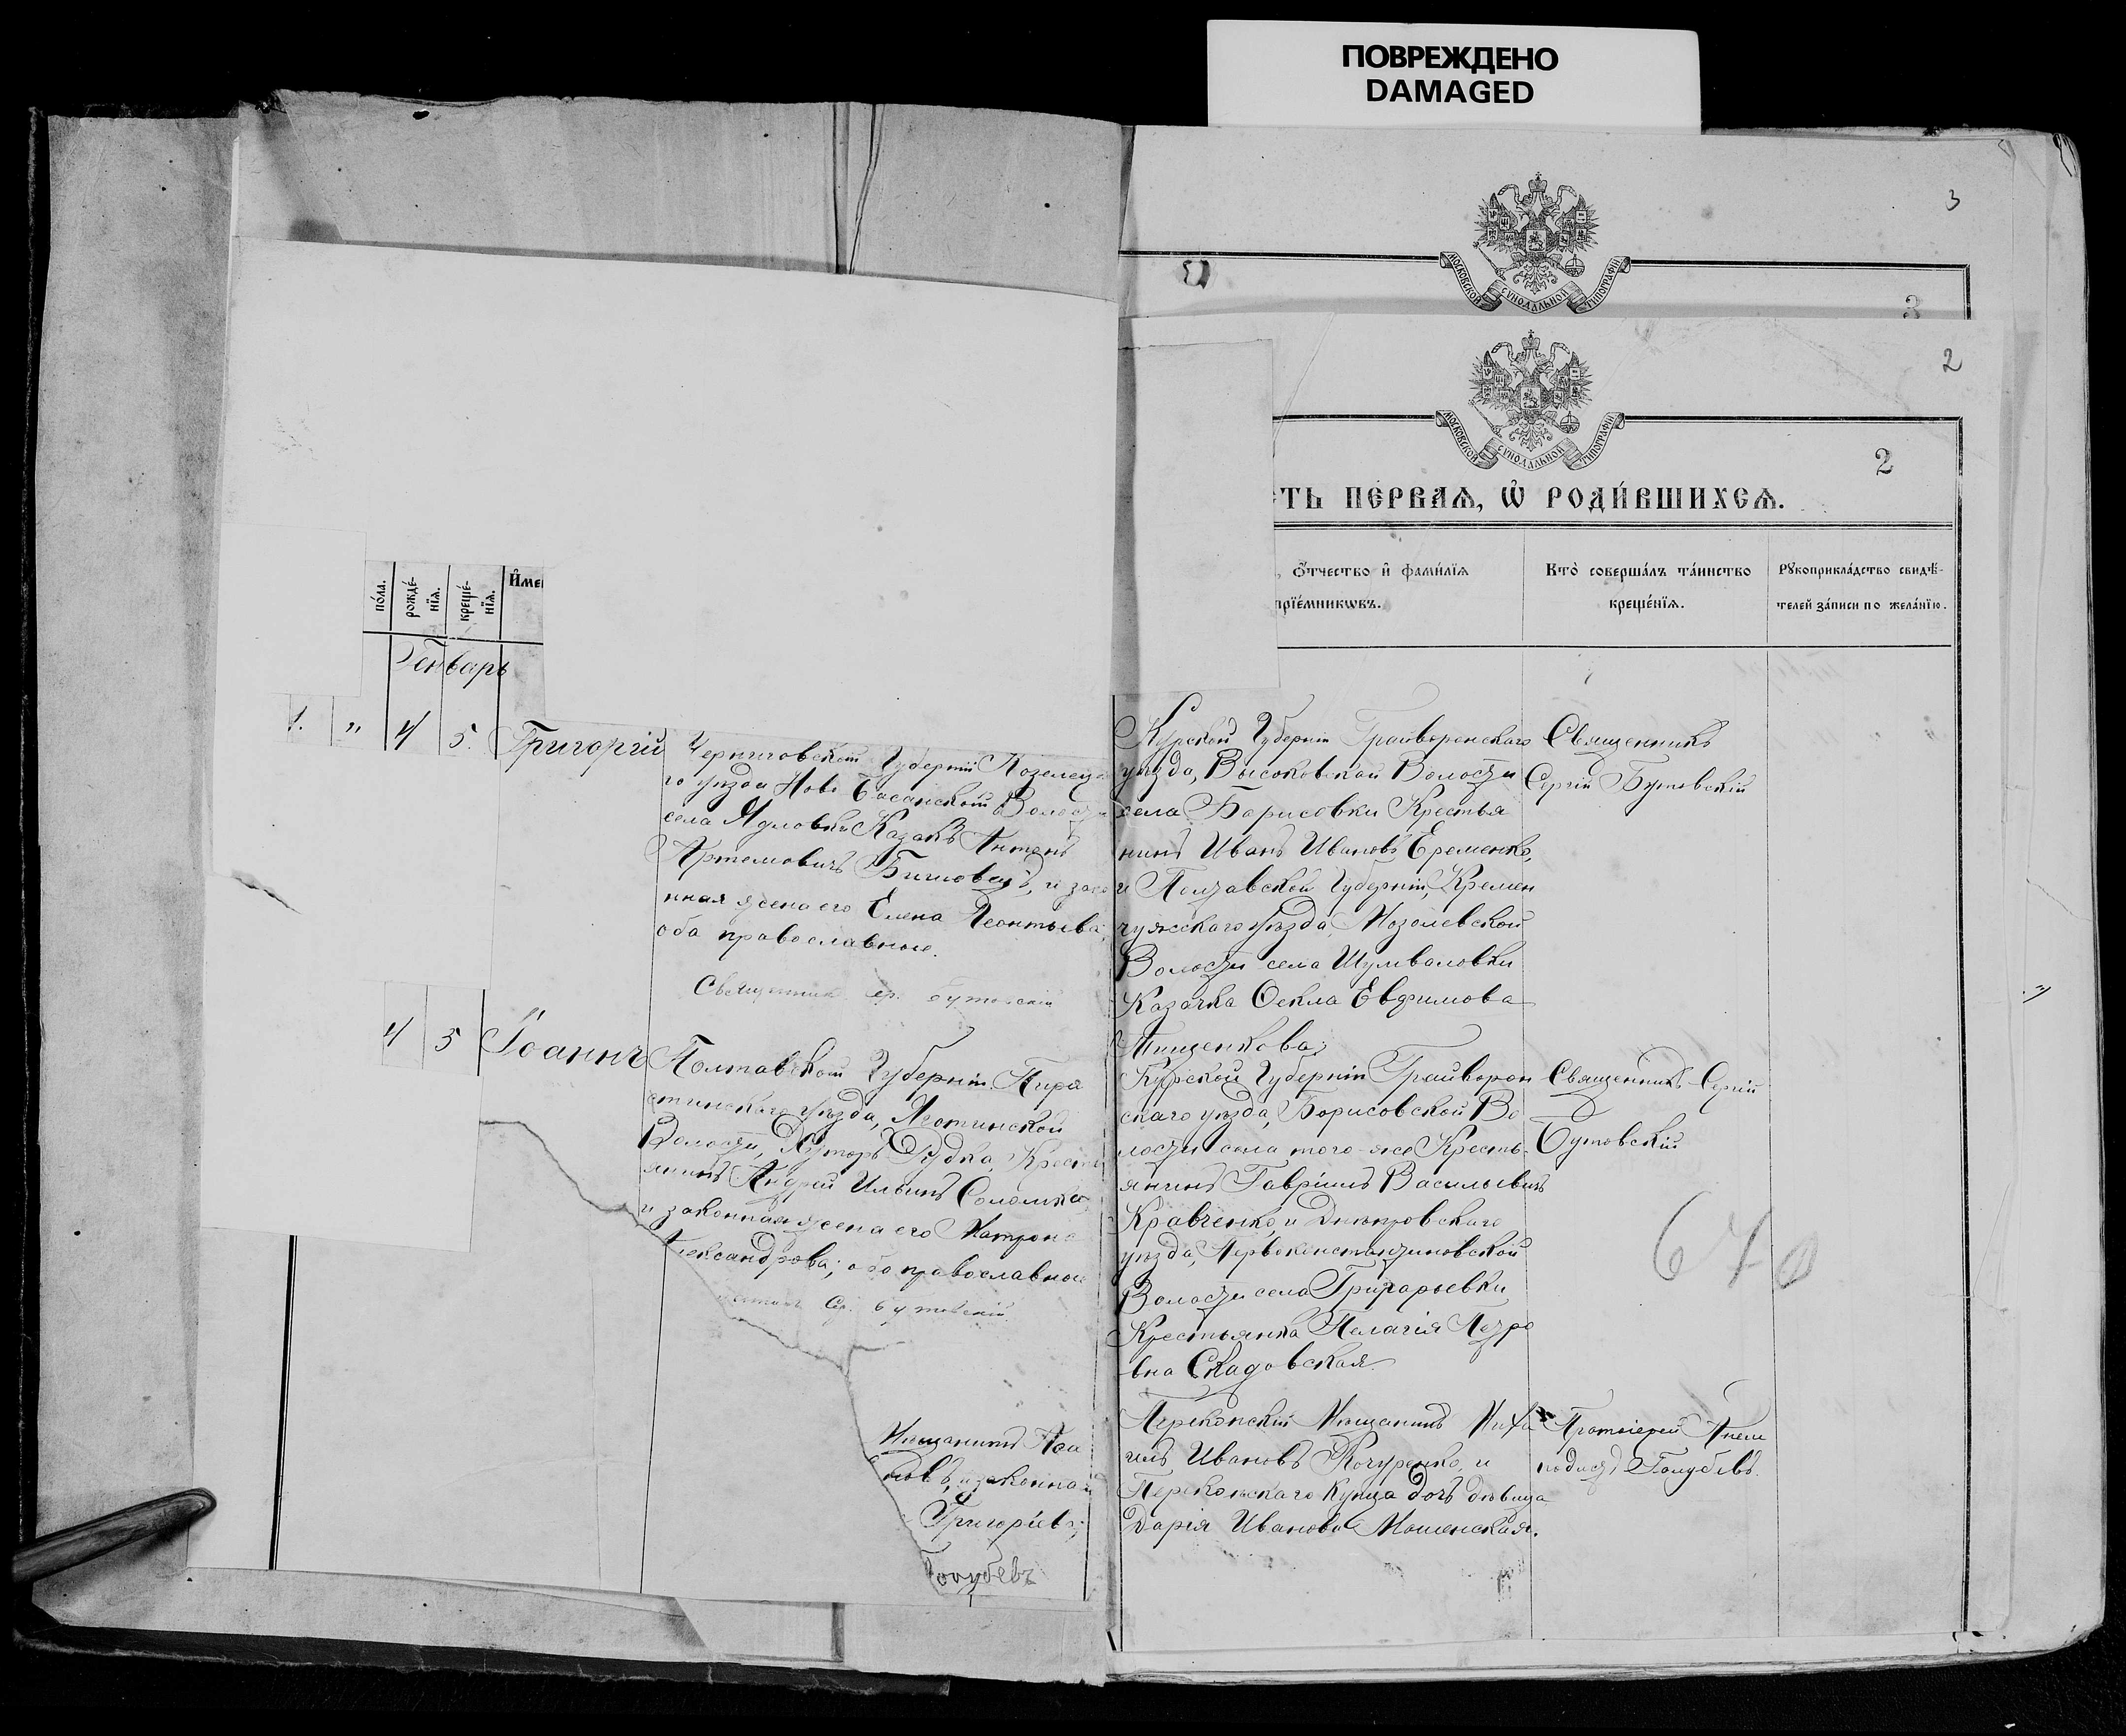 ПОВРЕЖДЕНО
DAMAGED
3
МОСКОВСКОЙ СУНОДАЛЬНОЙ ТИПОГРАФІИ
3
2
МОСКОВСКОЙ СУНОДАЛЬНОЙ ТИПОГРАФІИ
2
СТЬ ПЕРВАЯ, Ѡ РОДИ́ВШИХСЯ.
по́ла.
рожде́-
нїѧ.
креще́-
нїѧ.
И҆ме
Генварь
1. " 4 5. Григорій
Черниговской Губерніи Козелец
го уѣзда Ново Басанской Волости
села Ядловки Казакъ Антонъ
Артемовичъ и зако
нная жена его Елена Леонтьева,
оба православные.
Священникъ Сер. Бутовскій
4 5 Іоаннъ
Полтавской Губерніи Пиря
тинскаго уѣзда, Яготинской
Волости, Хуторъ Рудка, Кресть
янинъ Андрей Ильинъ Соломка
и законная жена его Матрона
лександрова; оба православные
Сер. Бутовскій
Мѣщанинъ
новъ, и законная
Григоріева;
Голубевъ
, Ѻ҆́тчество и҆ фами́лїѧ
прїе́мникѡвъ.
Кто̀ соверша́лъ та́инство
креще́нїѧ.
Рꙋкоприкла́дство свидѣ́-
телей за́писи по жела́нїю.
Курской Губерніи Грайворонскаго
уѣзда, Высоковской Волости
села Борисовки Крестья
нинъ Иванъ Ивановъ Еременко,
и Полтавской Губерніи, Кремен
чужскаго уѣзда,
Волости села
Казачка Ѳекла Евфимова
Тищенкова;
Священникъ
Сергій Бутовскій
Курской Губерніи Грайворон
скаго уѣзда, Борисовской Во
лости села того-же Кресть-
янинъ Гавріилъ Васильевичъ
Кравченко, и Днѣпровскаго
уѣзда, Первоконстантиновской
Волости села Григорьевки
Крестьянка Пелагія Петро
вна Скадовская.
Священникъ Сергій
Бутовскій
Перекопскій Мѣщанинъ Миха
илъ Ивановъ Кочуренко, и
Перекопскаго Купца дочь дѣвица
Дарія Иванова Мошенская.
Протоіерей Анем
подистъ Голубевъ.